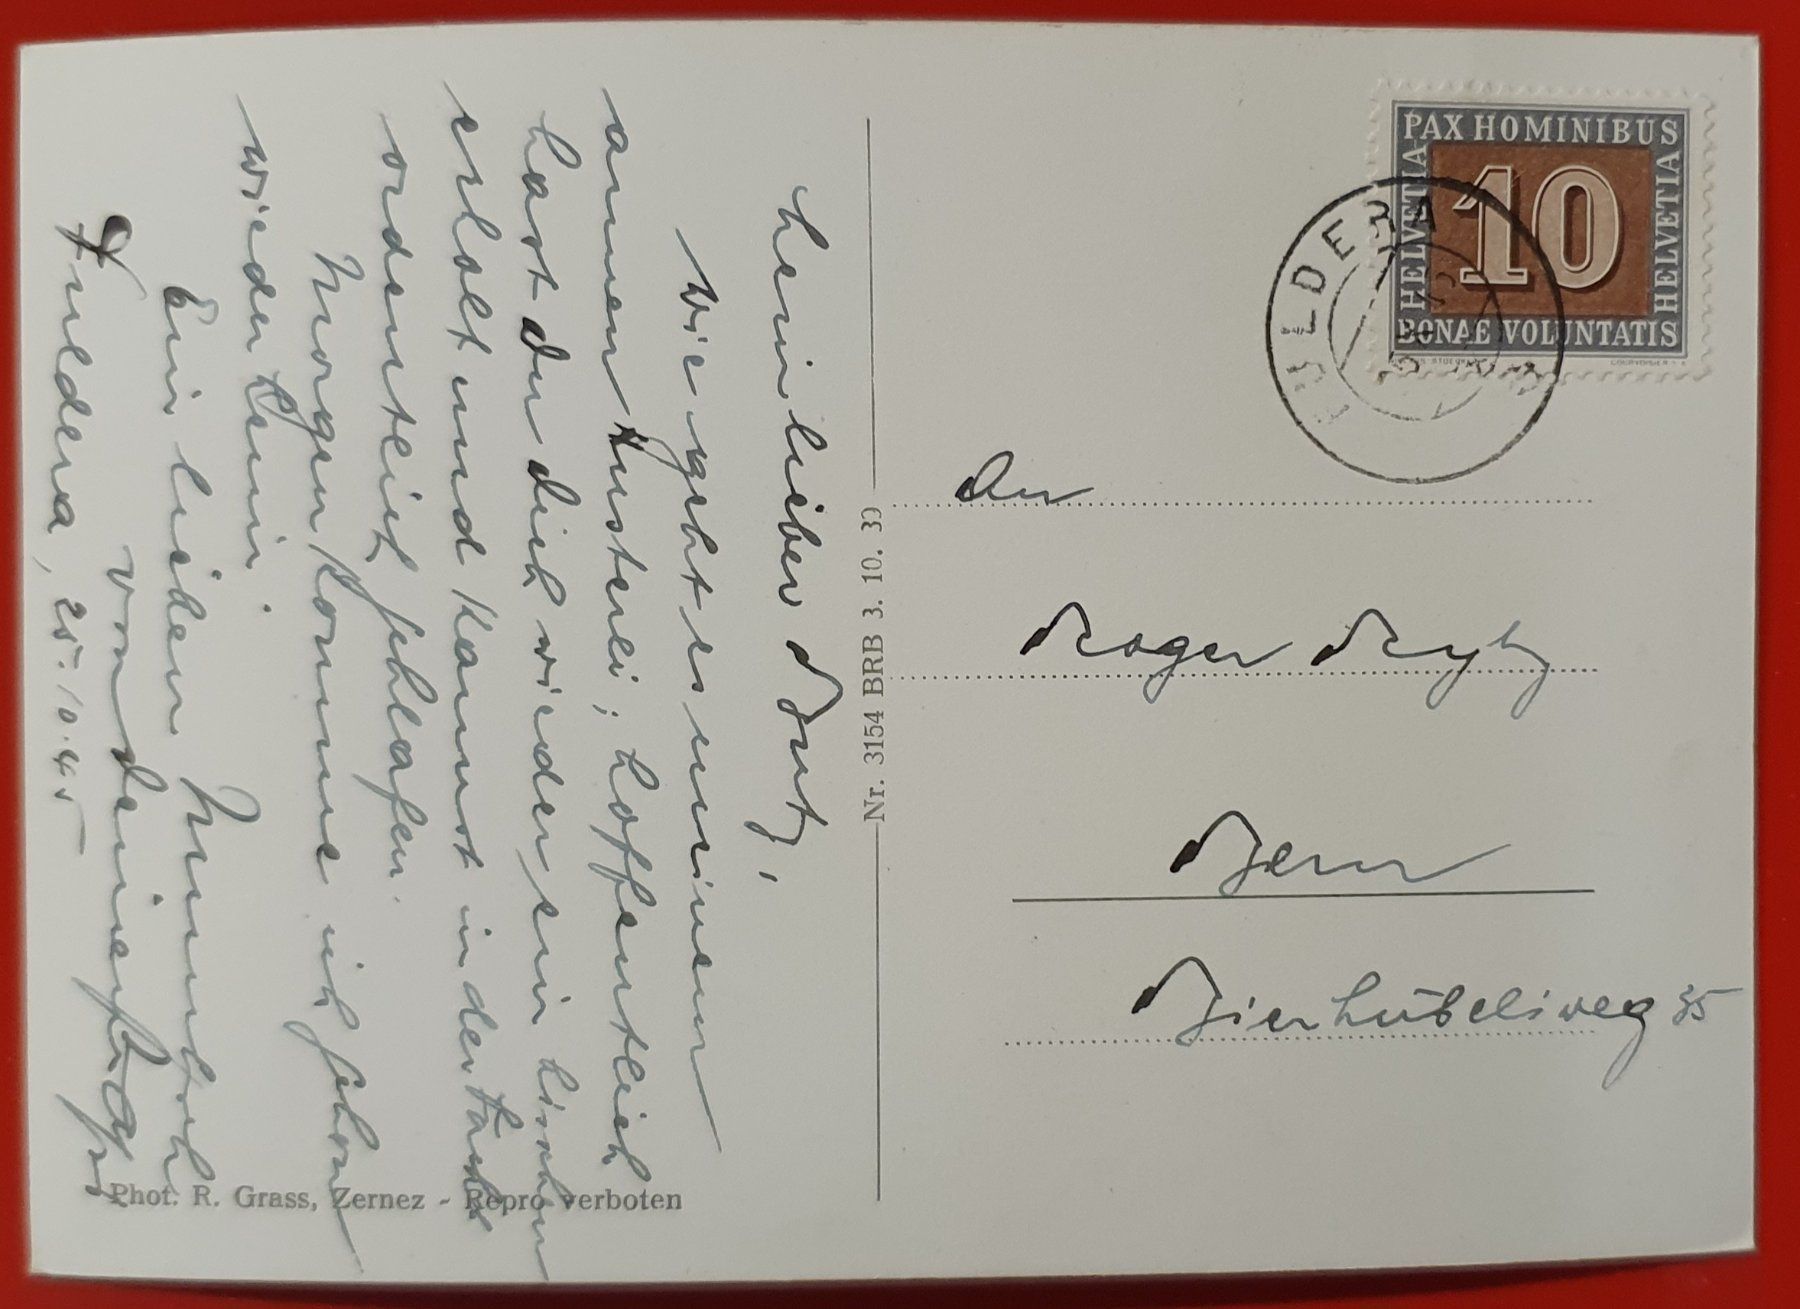 PAX HOMINIBUS
HELVETIA
10
HELVETIA
BONAE VOLUNTATIS
COURVOISIER
FULDERA
An
Roger Rytz
Bern
Bierhübeliweg 35
Nr. 3154 BRB 3. 10. 39
Mein lieber Butz,
Wie geht es meinem
armen Husterli; hoffentlich
hast du dich wieder ein bischen
erholt und kannst in der Nacht
ordentlich schlafen.
Morgen komme ich schon
wieder heim.
Ein lieben
von deinem Papi
Fuldera, 25.10.45
Phot. R. Grass, Zernez - Repro verboten